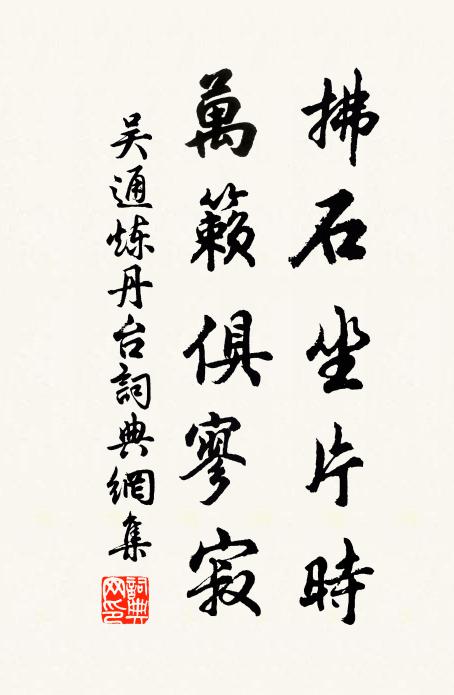 拂石坐片時
萬籟俱寥寂
吴通炼丹台詞典網集
詞典網印